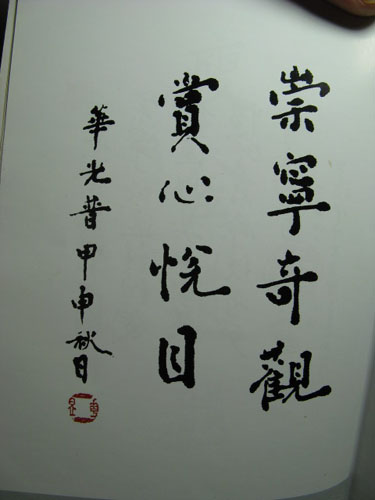 崇寧奇觀
賞心悅目
華光普甲申秋日